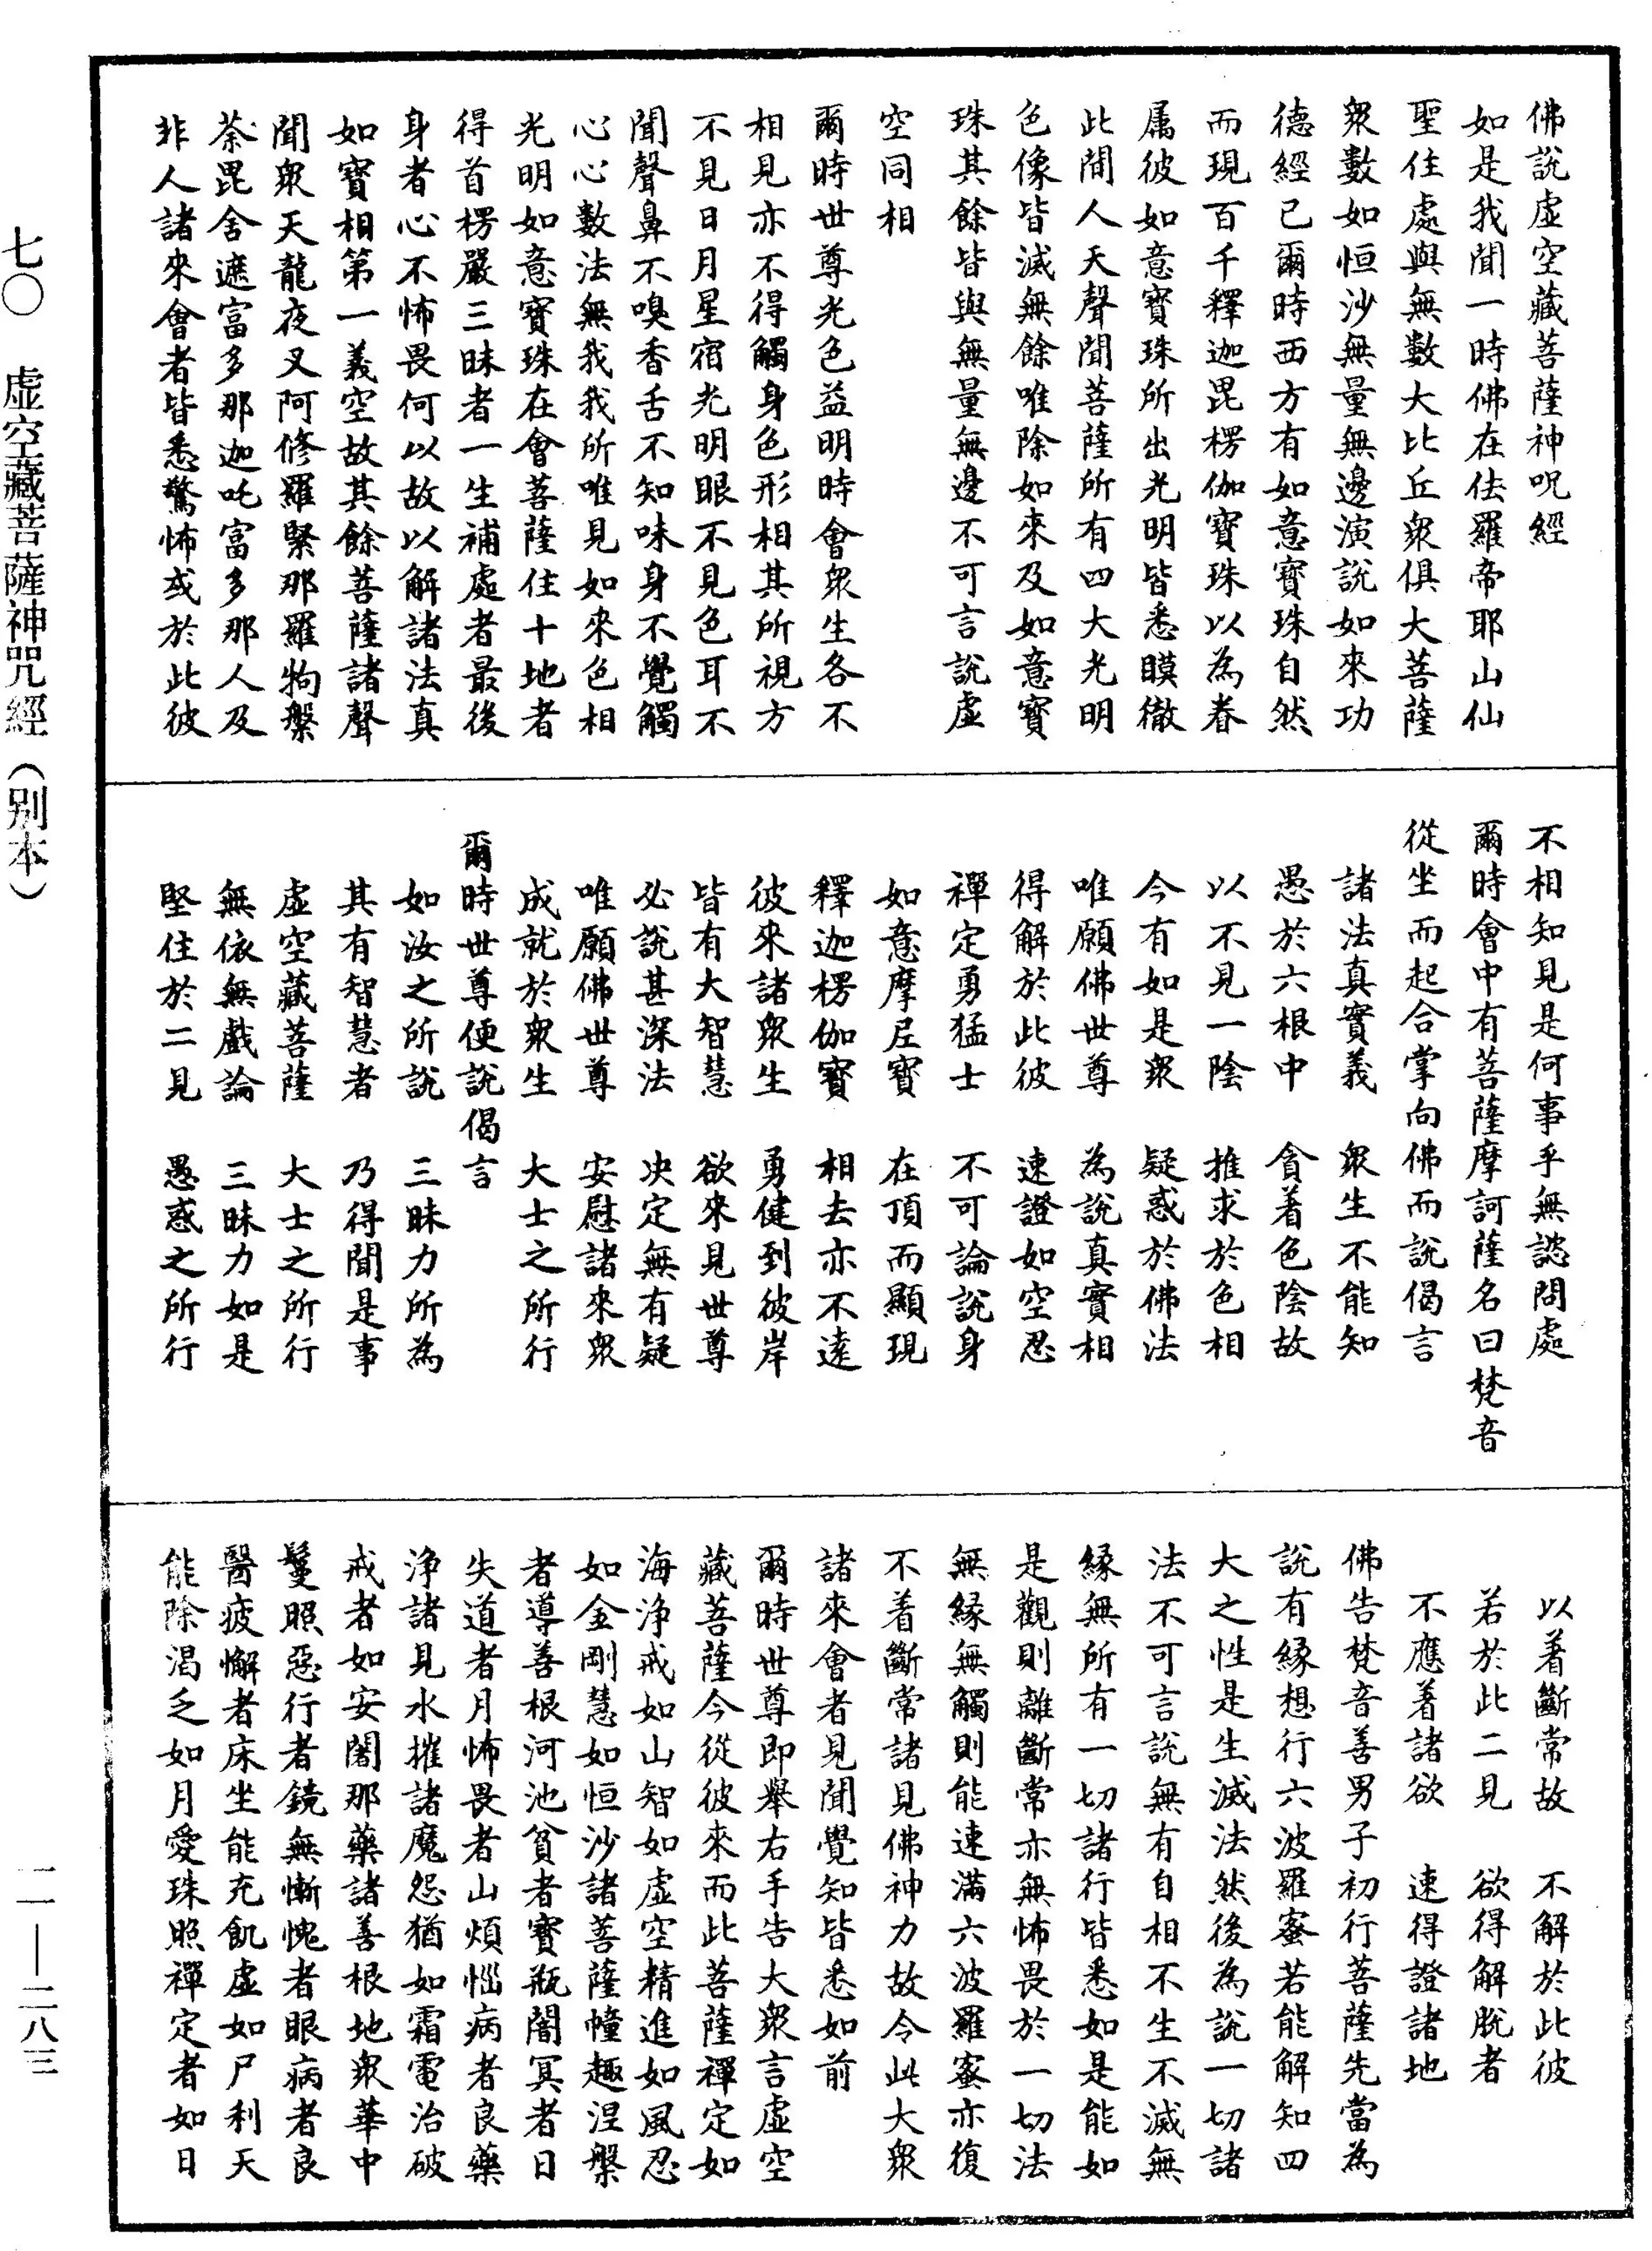 佛說虛空藏菩薩神呪經
如是我聞一時佛在佉羅帝耶山仙
聖住處與無數大比丘衆俱大菩薩
衆數如恒沙無量無邊演說如來功
德經已爾時西方有如意寶珠自然
而現百千釋迦毘楞伽寶珠以為眷
属彼如意寶珠所出光明皆悉瞙徹
此間人天聲聞菩薩所有四大光明
色像皆滅無餘唯除如來及如意寶
珠其餘皆與無量無邊不可言說虛
空同相
爾時世尊光色益明時會衆生各不
相見亦不得觸身色形相其所視方
不見日月星宿光明眼不見色耳不
聞聲鼻不嗅香舌不知味身不覺觸
心心數法無我我所唯見如來色相
光明如意寶珠在會菩薩住十地者
得首楞嚴三昧者一生補處者最後
身者心不怖畏何以故以解諸法真
如實相第一義空故其餘菩薩諸聲
聞衆天龍夜叉阿修羅緊那羅鳩槃
荼毘舍遮富多那迦吒富多那人及
非人諸來會者皆悉驚怖或於此彼
不相知見是何事乎無諮問處
爾時會中有菩薩摩訶薩名曰梵音
從坐而起合掌向佛而說偈言
諸法真實義　衆生不能知
愚於六根中　貪着色陰故
以不見一陰　推求於色相
今有如是衆　疑惑於佛法
唯願佛世尊　為說真實相
得解於此彼　速證如空忍
禪定勇猛士　不可論說身
如意摩尼寶　在頂而顯現
釋迦楞伽寶　相去亦不遠
彼來諸衆生　勇健到彼岸
皆有大智慧　欲來見世尊
必說甚深法　决定無有疑
唯願佛世尊　安慰諸來衆
成就於衆生　大士之所行
爾時世尊便說偈言
如汝之所說　三昧力所為
其有智慧者　乃得聞是事
虛空藏菩薩　大士之所行
無依無戲論　三昧力如是
堅住於二見　愚惑之所行
以着斷常故　不解於此彼
若於此二見　欲得解脫者
不應著諸欲　速得證諸地
佛告梵音善男子初行菩薩先當為
說有緣想行六波羅蜜若能解知四
大之性是生滅法然後為說一切諸
法不可言說無有自相不生不滅無
緣無所有一切諸行皆悉如是能如
是觀則離斷常亦無怖畏於一切法
無緣無觸則能速滿六波羅蜜亦復
不着斷常諸見佛神力故令此大衆
諸來會者見聞覺知皆悉如前
爾時世尊即舉右手告大衆言虛空
藏菩薩今從彼來而此菩薩禪定如
海淨戒如山智如虛空精進如風忍
如金剛慧如恒沙諸菩薩幢趣涅槃
者導善根河池貧者寶瓶闇冥者日
失道者月怖畏者山煩惱病者良藥
淨諸見水摧諸魔怨猶如霜電治破
戒者如安闍那藥諸善根地衆華中
鬘照惡行者鏡無慚愧者眼病者良
醫疲懈者床坐能充飢虛如尸利天
能除渴乏如月愛珠照禪定者如日
七〇　虛空藏菩薩神咒經（別本）
一一——二八三